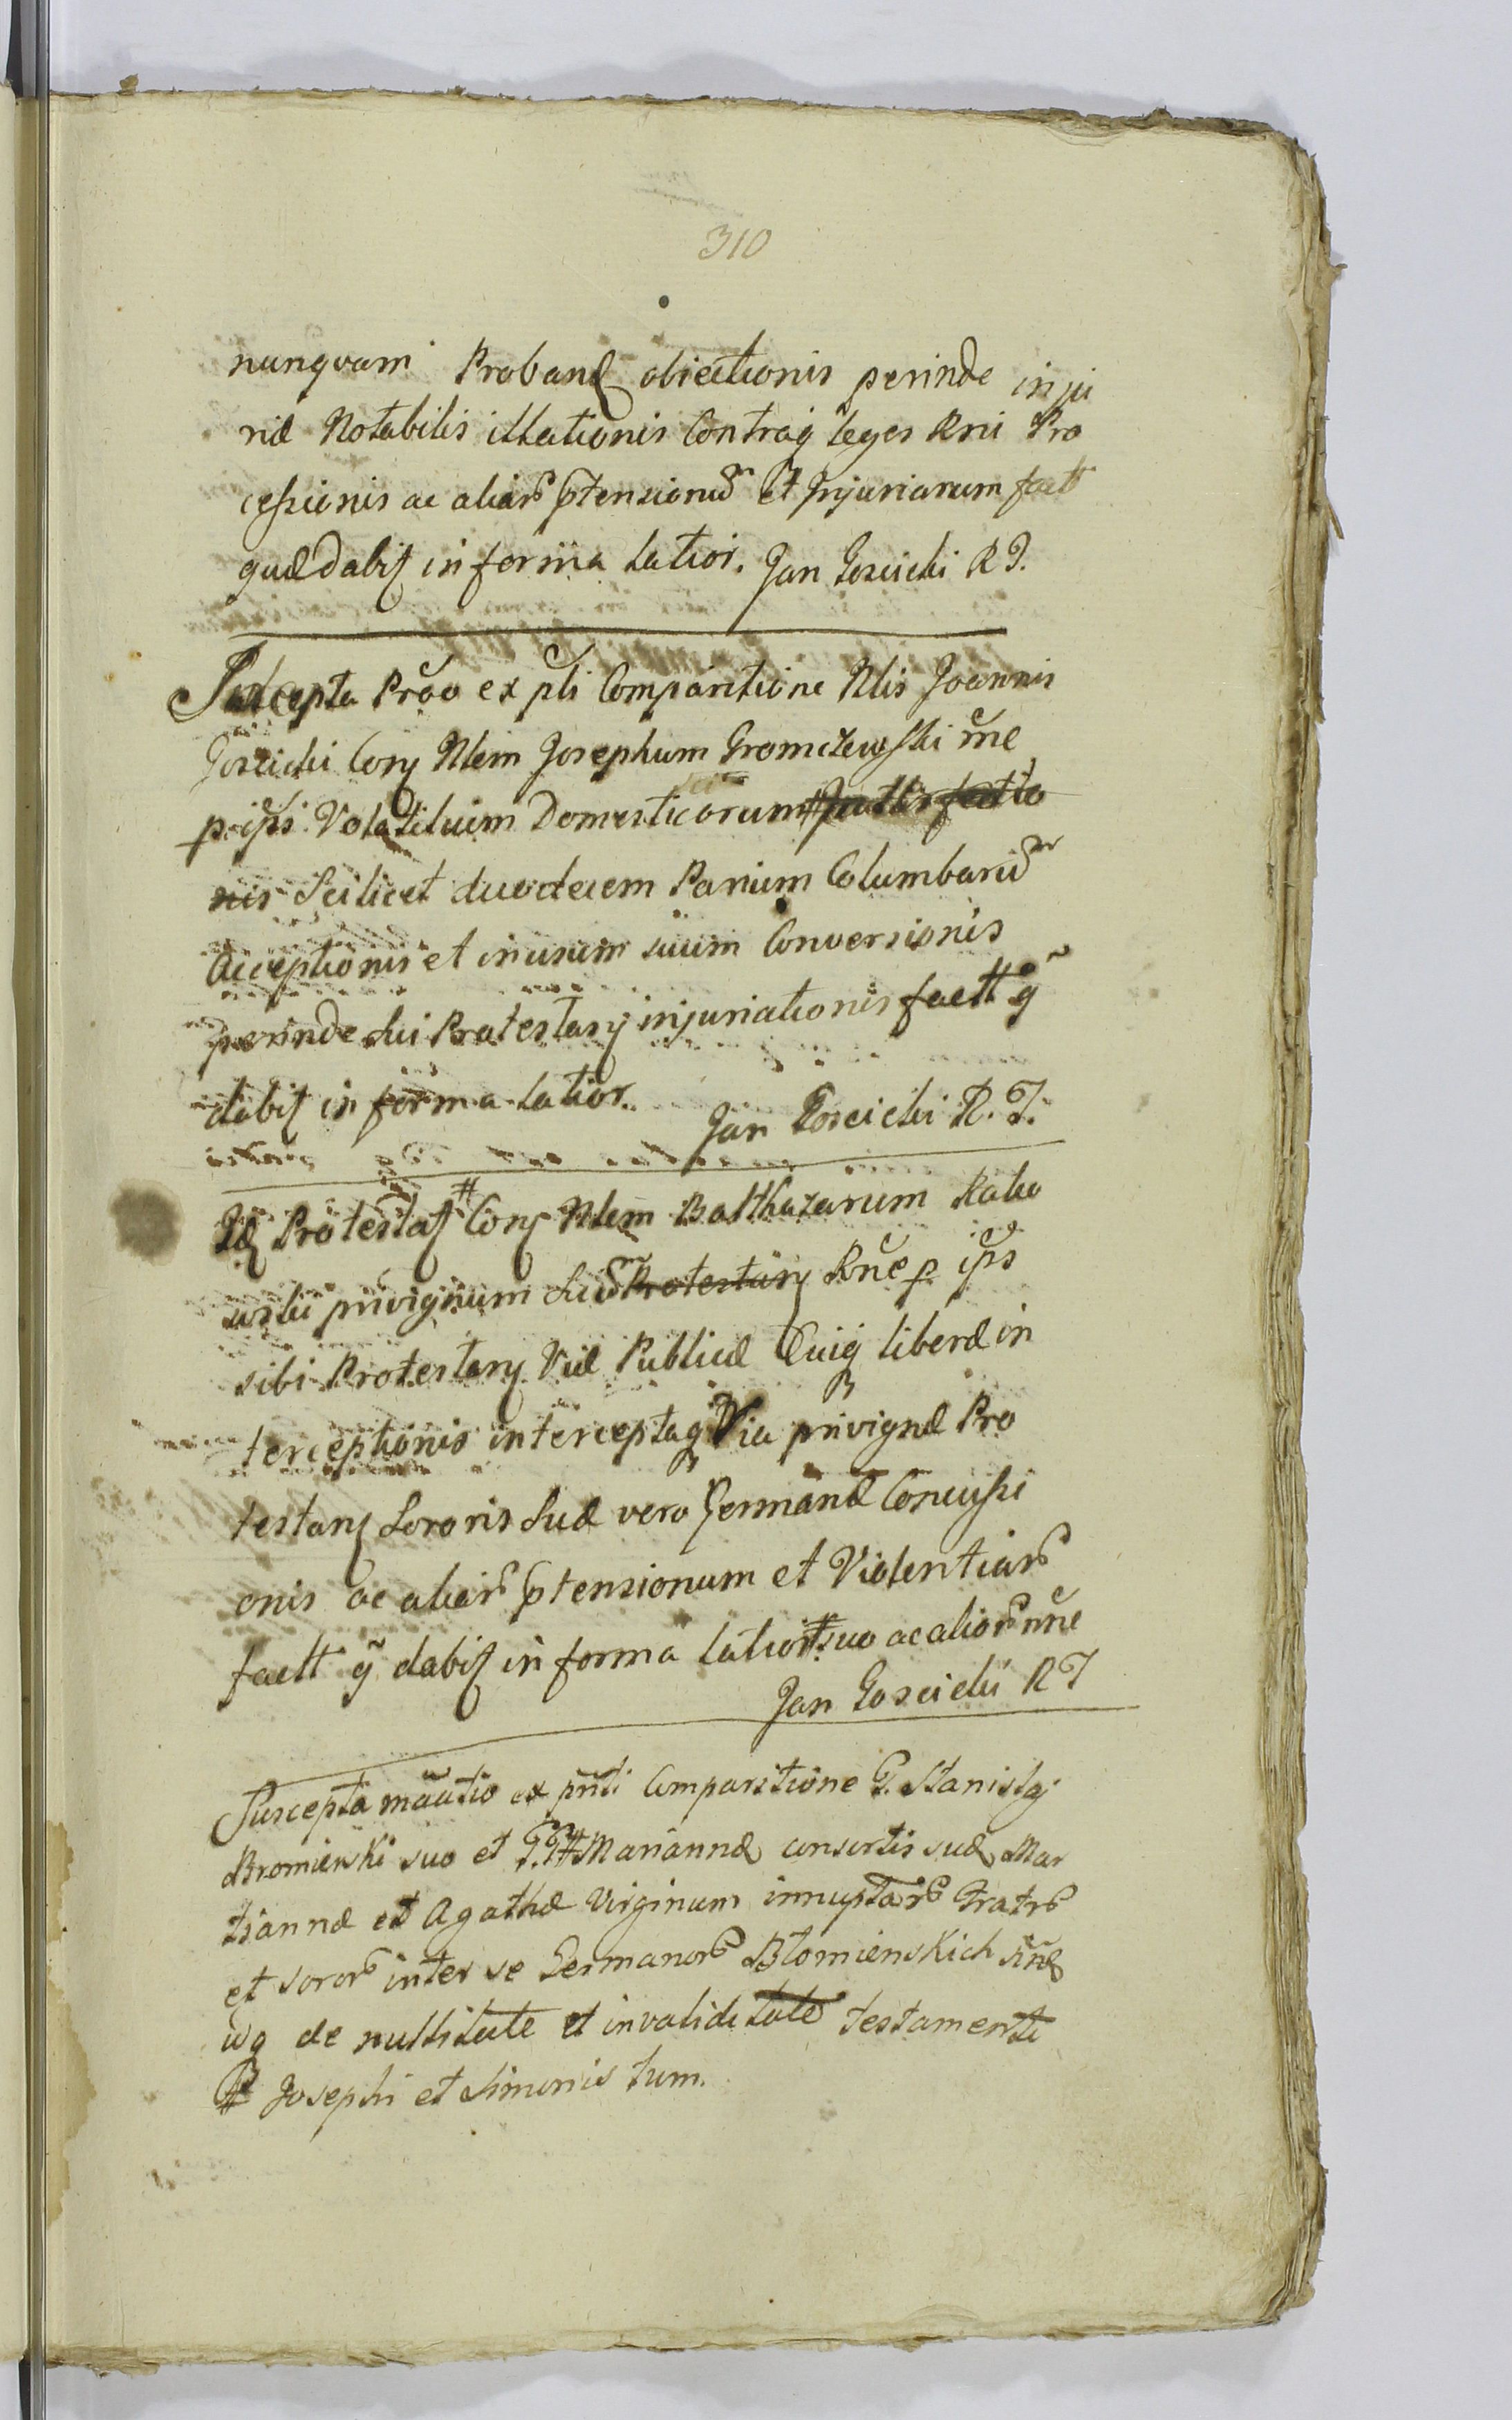 310
nunqvam Proband obiectionis perinde inju
riæ Notabilis illationis Contraq leges Rni Pro
cessionis ac aliar ptensionu et Injuriarum factt
quæ dabit in forma latior. Jan Goscicki R J.
Suscepta Prõo ex pti Comparitione Nlis Joannis
Goscicki Conj Nlem Josephum Gromczewski rñe
p. ipsi Volatilium Domesticorum
nis Scilicet duodecem Parium Columbaru
Acceptionis et in usum suum Conversionis
perinde sui Protestanj injuriationis factt q
dabit in forma latior. Jan Goscicki R. J.
Id Protestat # Conj Nlem Balthazarum Kako
wski privignum Suu Protestanj Rñe p ips
sibi Protestanj Viæ Publicæ Cuiq liberæ in
terceptionis interceptaq Via privignæ Pro
testanj Sororis Suæ vero Germanæ Concussi
onis ac aliar ptensionum et Violentiar
factt q dabit in forma latior # suo ac alior nñe
Jan Goscicki R J
Suscepta mãtio ex pñti Comparitione G. Stanislaj
Bromirski suo et G.G. # Mariannæ consortis suæ Mar
tiannæ et Agathæ Virginum innuptar Fratr
et soror inter se Germanor Blomienskich
de nullitate et invaliditate testamenti
# Josephi et Simonis tum.